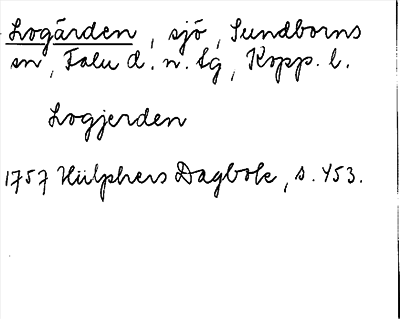 Logården, sjö, Sundborns
sn, Falu d. n. tg, Kopp. l.
Logjerden
1757 Hülphers Dagbok, s. 453.